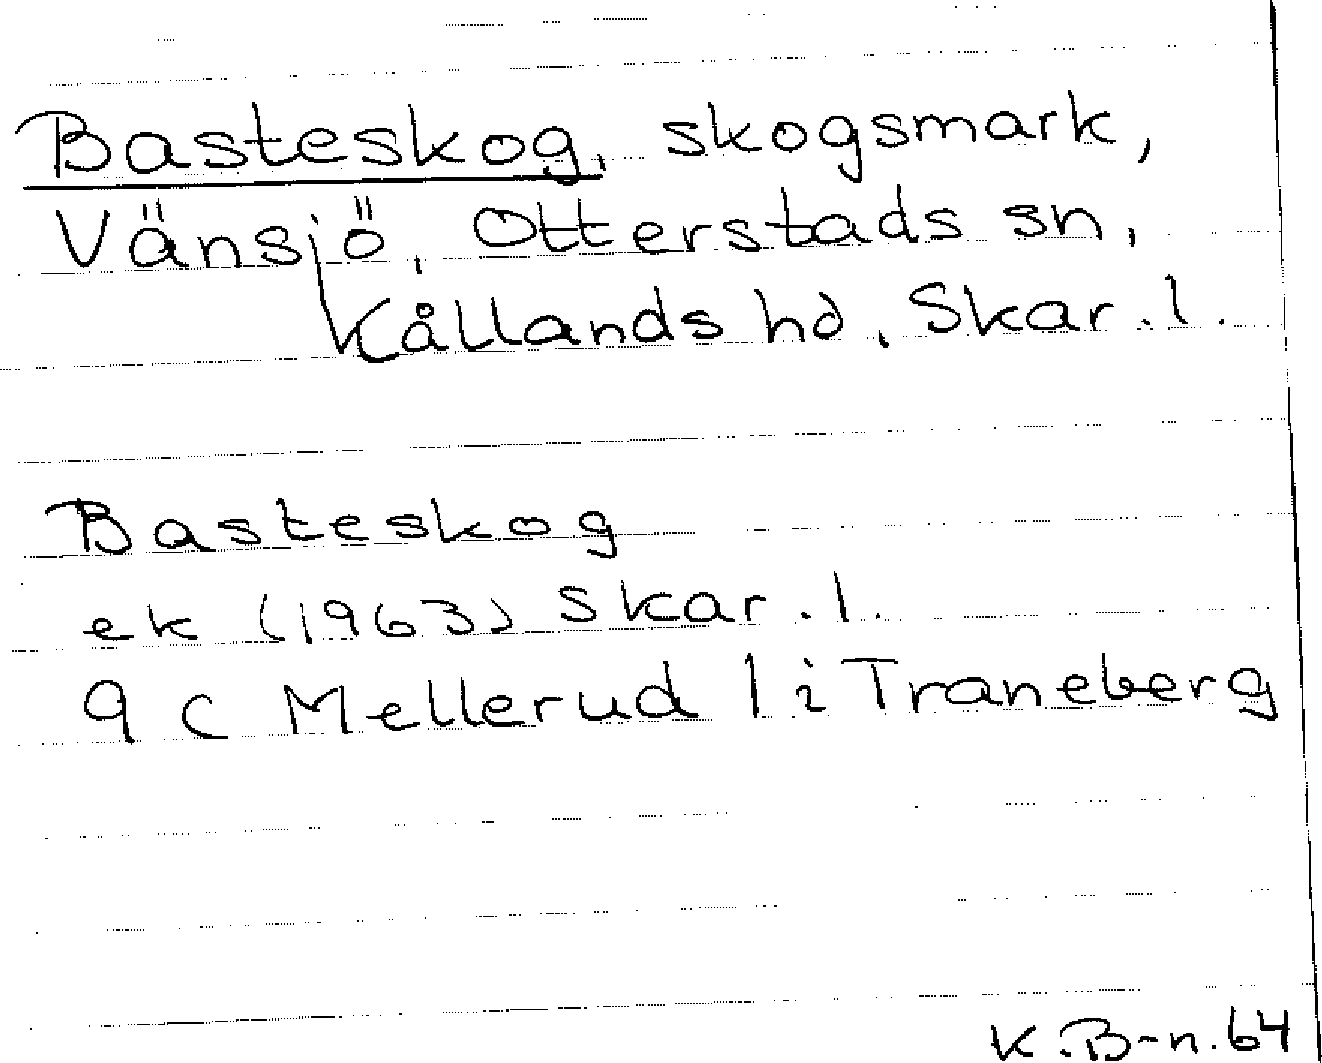 Basteskog, skogsmark,
Vänsjö, Otterstads sn,
Kållands hd, Skar. l.
Basteskog
ek (1963) Skar. l.
9 C Mellerud 1 i Traneberg
K. B-n. 64